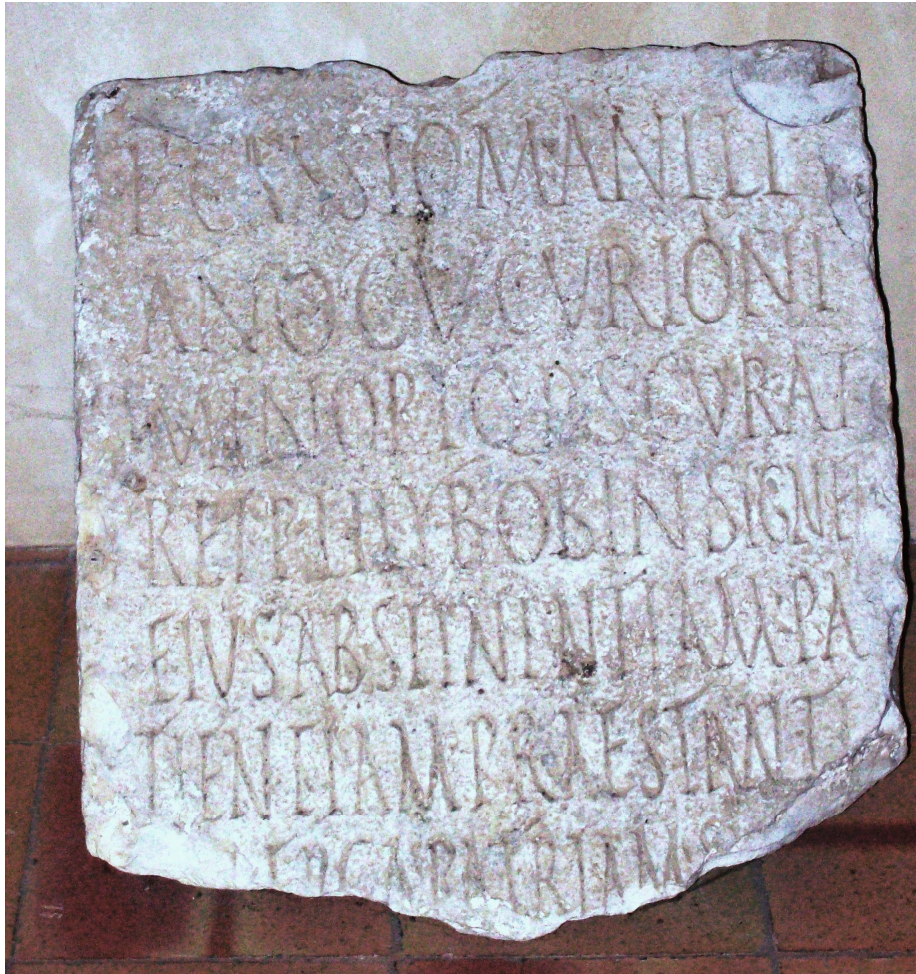 CASSIO MANILI
ANO C V CVRIONI
CVRAT
REI P OB INSIGNE
EIVS ABSTINENTIAM PA
TIENTIAM PRAESTANTI
ERGA PATRIAM S